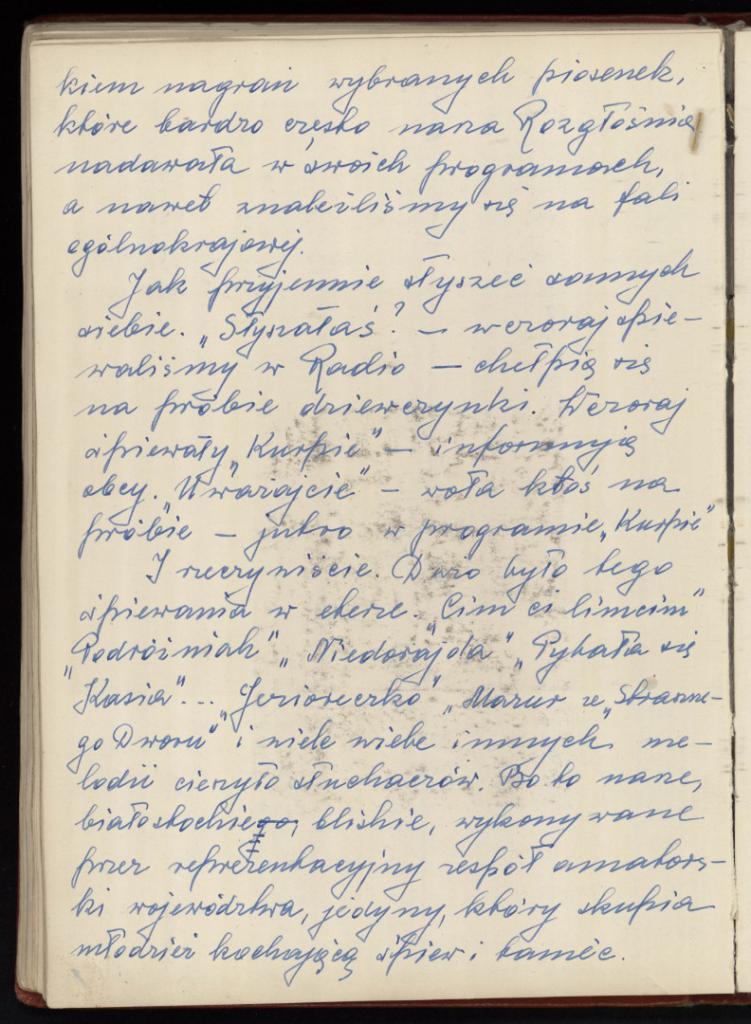 kiem nagrań wybranych piosenek,
które bardzo często nasza Rozgłośnia
nadawała w swoich programach,
a nawet znaleźliśmy się na fali
ogólnokrajowej.
Jak przyjemnie słyszeć samych
siebie. „Słyszałaś? — wczoraj śpie-
waliśmy w Radio — chełpią się
na próbie dziewczynki. Wczoraj
śpiewały „Kurpie" — informują
obcy. „Uważajcie" — woła ktoś na
próbie — jutro w programie „Kurpie"
I rzeczywiście. Dużo było tego
śpiewania w eterze. „Cim ci limcim"
„Podróżniak" „Niedorajda" „Pytała się
Kasia"... „Jezioreczko" „Mazur ze „Straszne-
go Dworu" i wiele wiele innych me-
lodii cieszyło słuchaczów. Bo to nasze,
białostockie, bliskie, wykonywane
przez reprezentacyjny zespół amators-
ki województwa, jedyny, który skupia
młodzież kochającą śpiew i taniec.